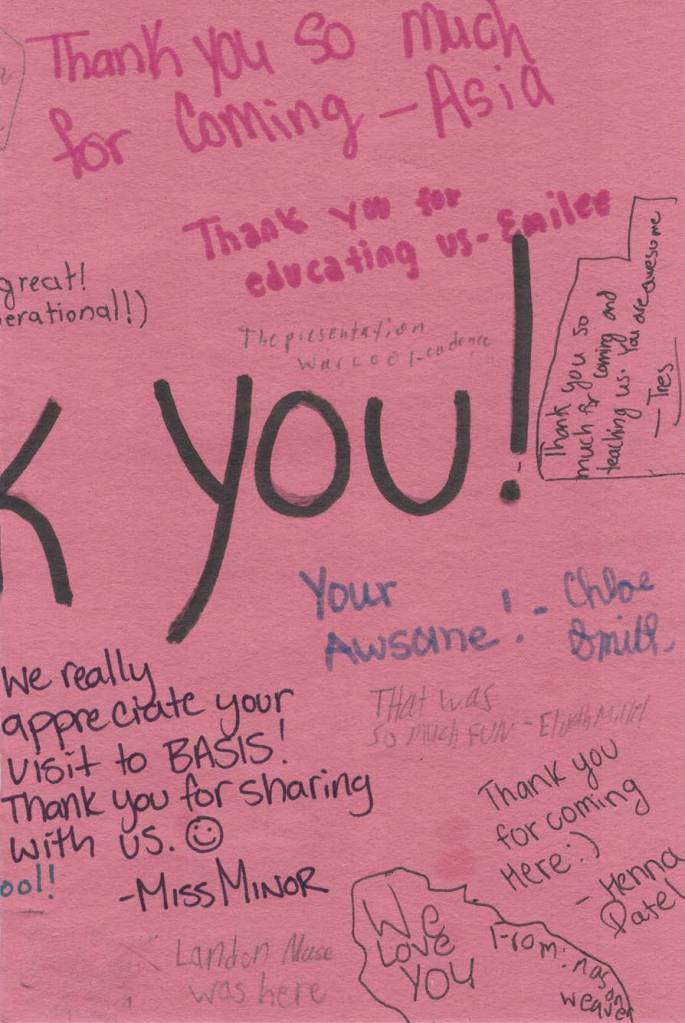 Thank you so much
for Coming - Asia
Thank you for
educating us - Emilee
great!
erational!)
The presentation
was cool - cadence
Thank you so
much for coming and
teaching us. You are awesome
- Tres
K YOU!
Your
Awsome! - Chloe
Smith
We really
appreciate your
visit to BASIS!
Thank you for sharing
with us. ☺
- Miss Minor
ool!
THAT was
SO MUCH FUN -
Thank you
for coming
Here :)
- Henna
Patel
We
Love
YOU
From: mason
weaver
Landon
was here